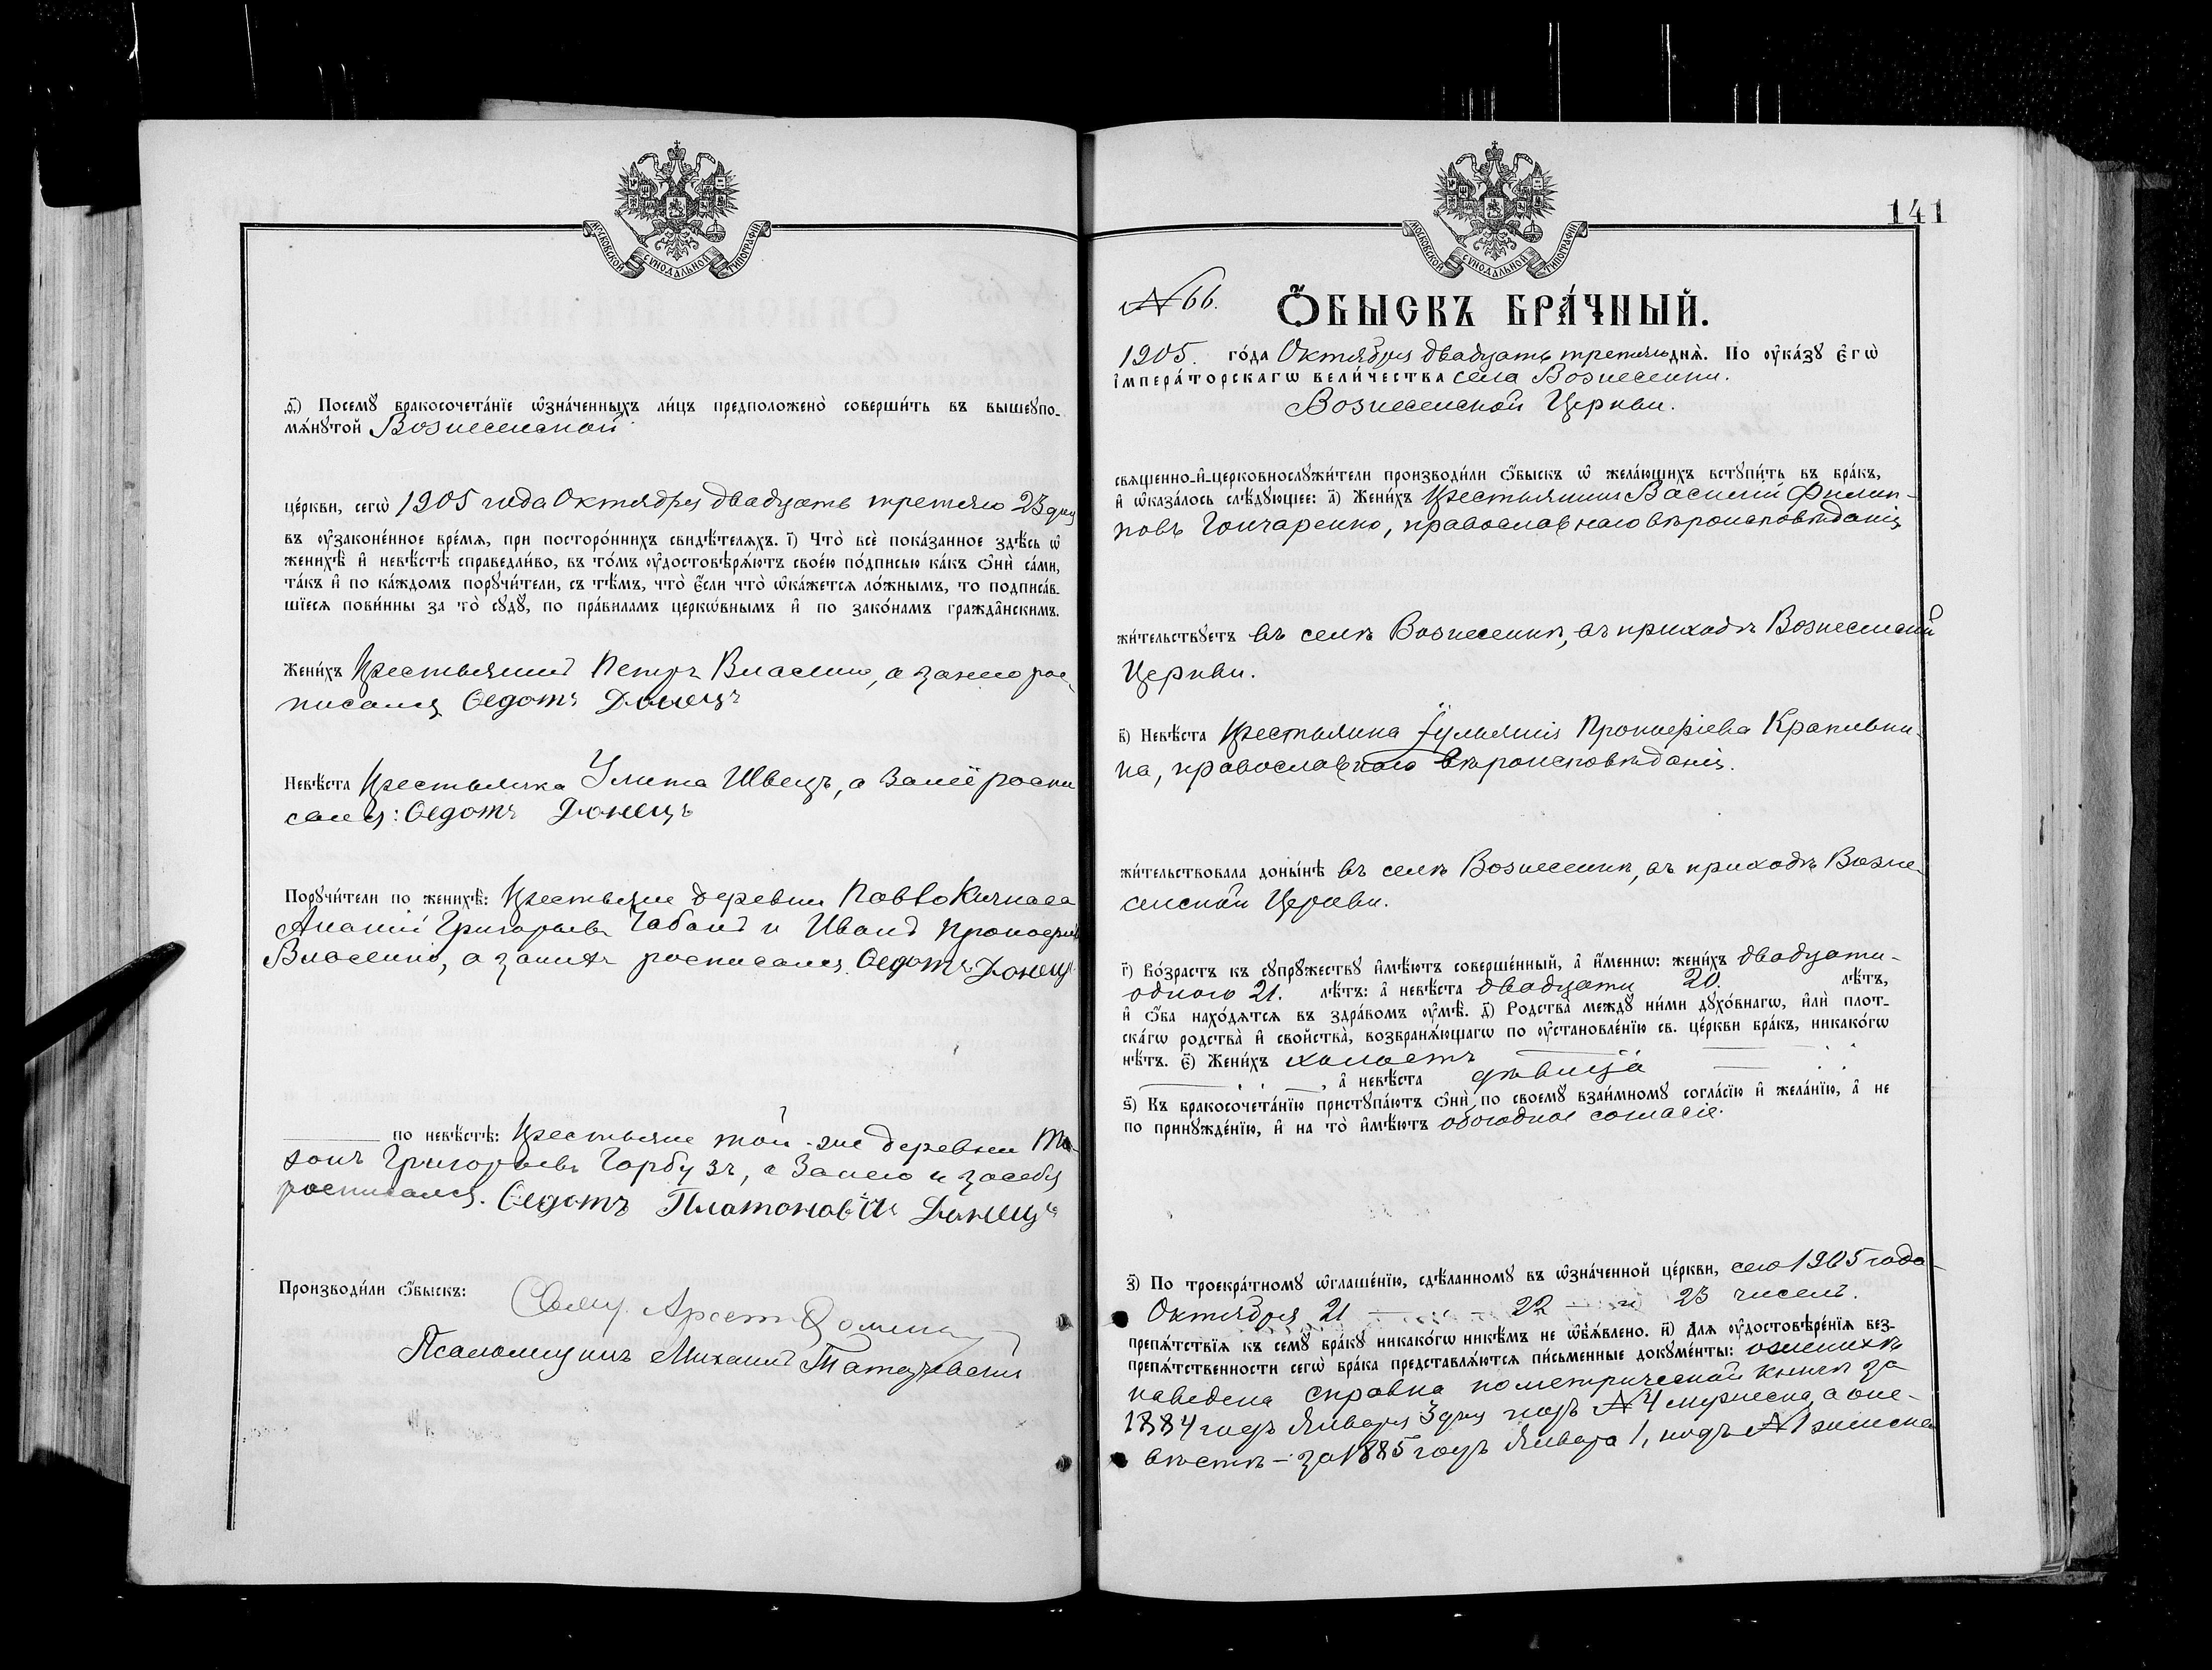 МОСКОВСКОЙ СѴНОДАЛЬНОЙ ТИПОГРАФІИ
ѳ҃) Посемꙋ бракосочета́нїе ѡ҆зна́ченныхъ ли́цъ предположено̀ соверши́ть въ вышеꙋпо-
мѧ́нꙋтой Вознесенской
це́ркви, сегѡ̀ 1905 года Октября двадцать третьяго 23 дня
въ ᲂу҆зако́ненное вре́мѧ, при посторо́ннихъ свидѣ́телѧхъ. і҃) Что̀ всѐ пока́занное здѣ́сь ѡ҆
женихѣ̀ и҆ невѣ́стѣ справедли́во, въ то́мъ ᲂу҆достовѣрѧ́ютъ свое́ю по́дписью ка́къ ѻ҆нѝ са́ми,
та́къ и҆ по ка́ждомъ порꙋчи́тели, съ тѣ́мъ, что̀ є҆́сли что̀ ѡ҆ка́жется ло́жнымъ, то подписа́в-
шїесѧ пови́нны за то̀ сꙋдꙋ̀, по пра́виламъ церкѡ́внымъ и҆ по зако́намъ гражда̑нскимъ.
Жени́хъ Крестьянинъ Петръ Власенко, а за него рос-
писался Ѳедотъ Донецъ
Невѣ́ста Крестьянка Улита Швецъ, а за неё роспи
сался: Ѳедотъ Донецъ
Порꙋчи́тели по женихѣ̀: Крестьяне деревни Павло Кичкаса
Ананій Григорьевъ Чабанъ и Иванъ Прокофіевъ
Власенко, а за нихъ росписался Ѳедотъ Донецъ
по невѣ́стѣ: Крестьяне той-же деревни
Григорьевъ Гарбузъ, а за него и за себя
росписался. Ѳедотъ Платоновъ Донецъ
Производи́ли ѻ҆́быскъ:
Псаломщикъ Михаилъ
МОСКОВСКОЙ СѴНОДАЛЬНОЙ ТИПОГРАФІИ
141
№ 66. Ѻ҆́БЫСКЪ БРА́ЧНЫЙ.
1905. го́да Октября двадцать третьяго днѧ̀. По ᲂу҆ка́зꙋ є҆гѡ̀
і҆мпера́торскагѡ вели́чества села Вознесенки.
Вознесенской Церкви.
свѧщенно-и҆-церковнослꙋжи́тели производи́ли ѻ҆́быскъ ѡ҆ жела́ющихъ встꙋпи́ть въ бра́къ,
и҆ ѡ҆каза́лось слѣ́дꙋющее: а҃) Жени́хъ Крестьянинъ Василій Филип-
повъ Гончаренко, православнаго вѣроисповѣданія
жи́тельствꙋетъ въ селѣ Вознесенкѣ, въ приходѣ Вознесенской
Церкви.
в҃) Невѣ́ста Крестьянка Іульянія Прокофіева Крапивки-
на, православнаго вѣроисповѣданія.
жи́тельствовала доны́нѣ въ селѣ Вознесенкѣ, въ приходѣ Возне-
сенской Церкви.
г҃) Во́зрастъ къ сꙋпрꙋ́жествꙋ и҆мѣ́ютъ соверше́нный, а҆ и҆́меннѡ: жени́хъ двадцати-
одного 21. лѣ́тъ: а҆ невѣ́ста двадцати 20. лѣ́тъ,
и҆ ѻ҆́ба нахо́дѧтсѧ въ здра́вомъ ᲂу҆мѣ̀. д҃) Родства̀ междꙋ̀ ни́ми дꙋхо́внагѡ, и҆лѝ плот-
ска́гѡ родства̀ и҆ свойства̀, возбранѧ́ющагѡ по ᲂу҆становле́нїю св. це́ркви бра́къ, никако́гѡ
нѣ́тъ. є҃) Жени́хъ холостъ
а҆ невѣ́ста дѣвица
ѕ҃) Къ бракосочета́нїю пристꙋпа́ютъ ѻ҆нѝ по своемꙋ взаи́мномꙋ согла́сїю и҆ жела́нїю, а҆ не
по принꙋжде́нїю, и҆ на то̀ и҆мѣ́ютъ обоюдное согласіе.
з҃) По троекра́тномꙋ ѡ҆глаше́нїю, сдѣ́ланномꙋ въ ѡ҆зна́ченной це́ркви, сего 1905 года
Октября 21 — 22 — и 23 чиселъ.
препѧ́тствїѧ къ семꙋ̀ бра́кꙋ никако́гѡ никѣ́мъ не ѡ҆б̾ѧ́влено. и҃) Длѧ ᲂу҆достовѣре́нїѧ без-
препѧ́тственности сегѡ̀ бра́ка представлѧ́ютсѧ пи́сьменные докꙋме́нты: о женихѣ
наведена справка по метрической книгѣ за
1884 годъ Января 3 дня подъ № 4 мужеска, а о не-
вѣстѣ — за 1885 годъ Января 1, подъ № 1 женска